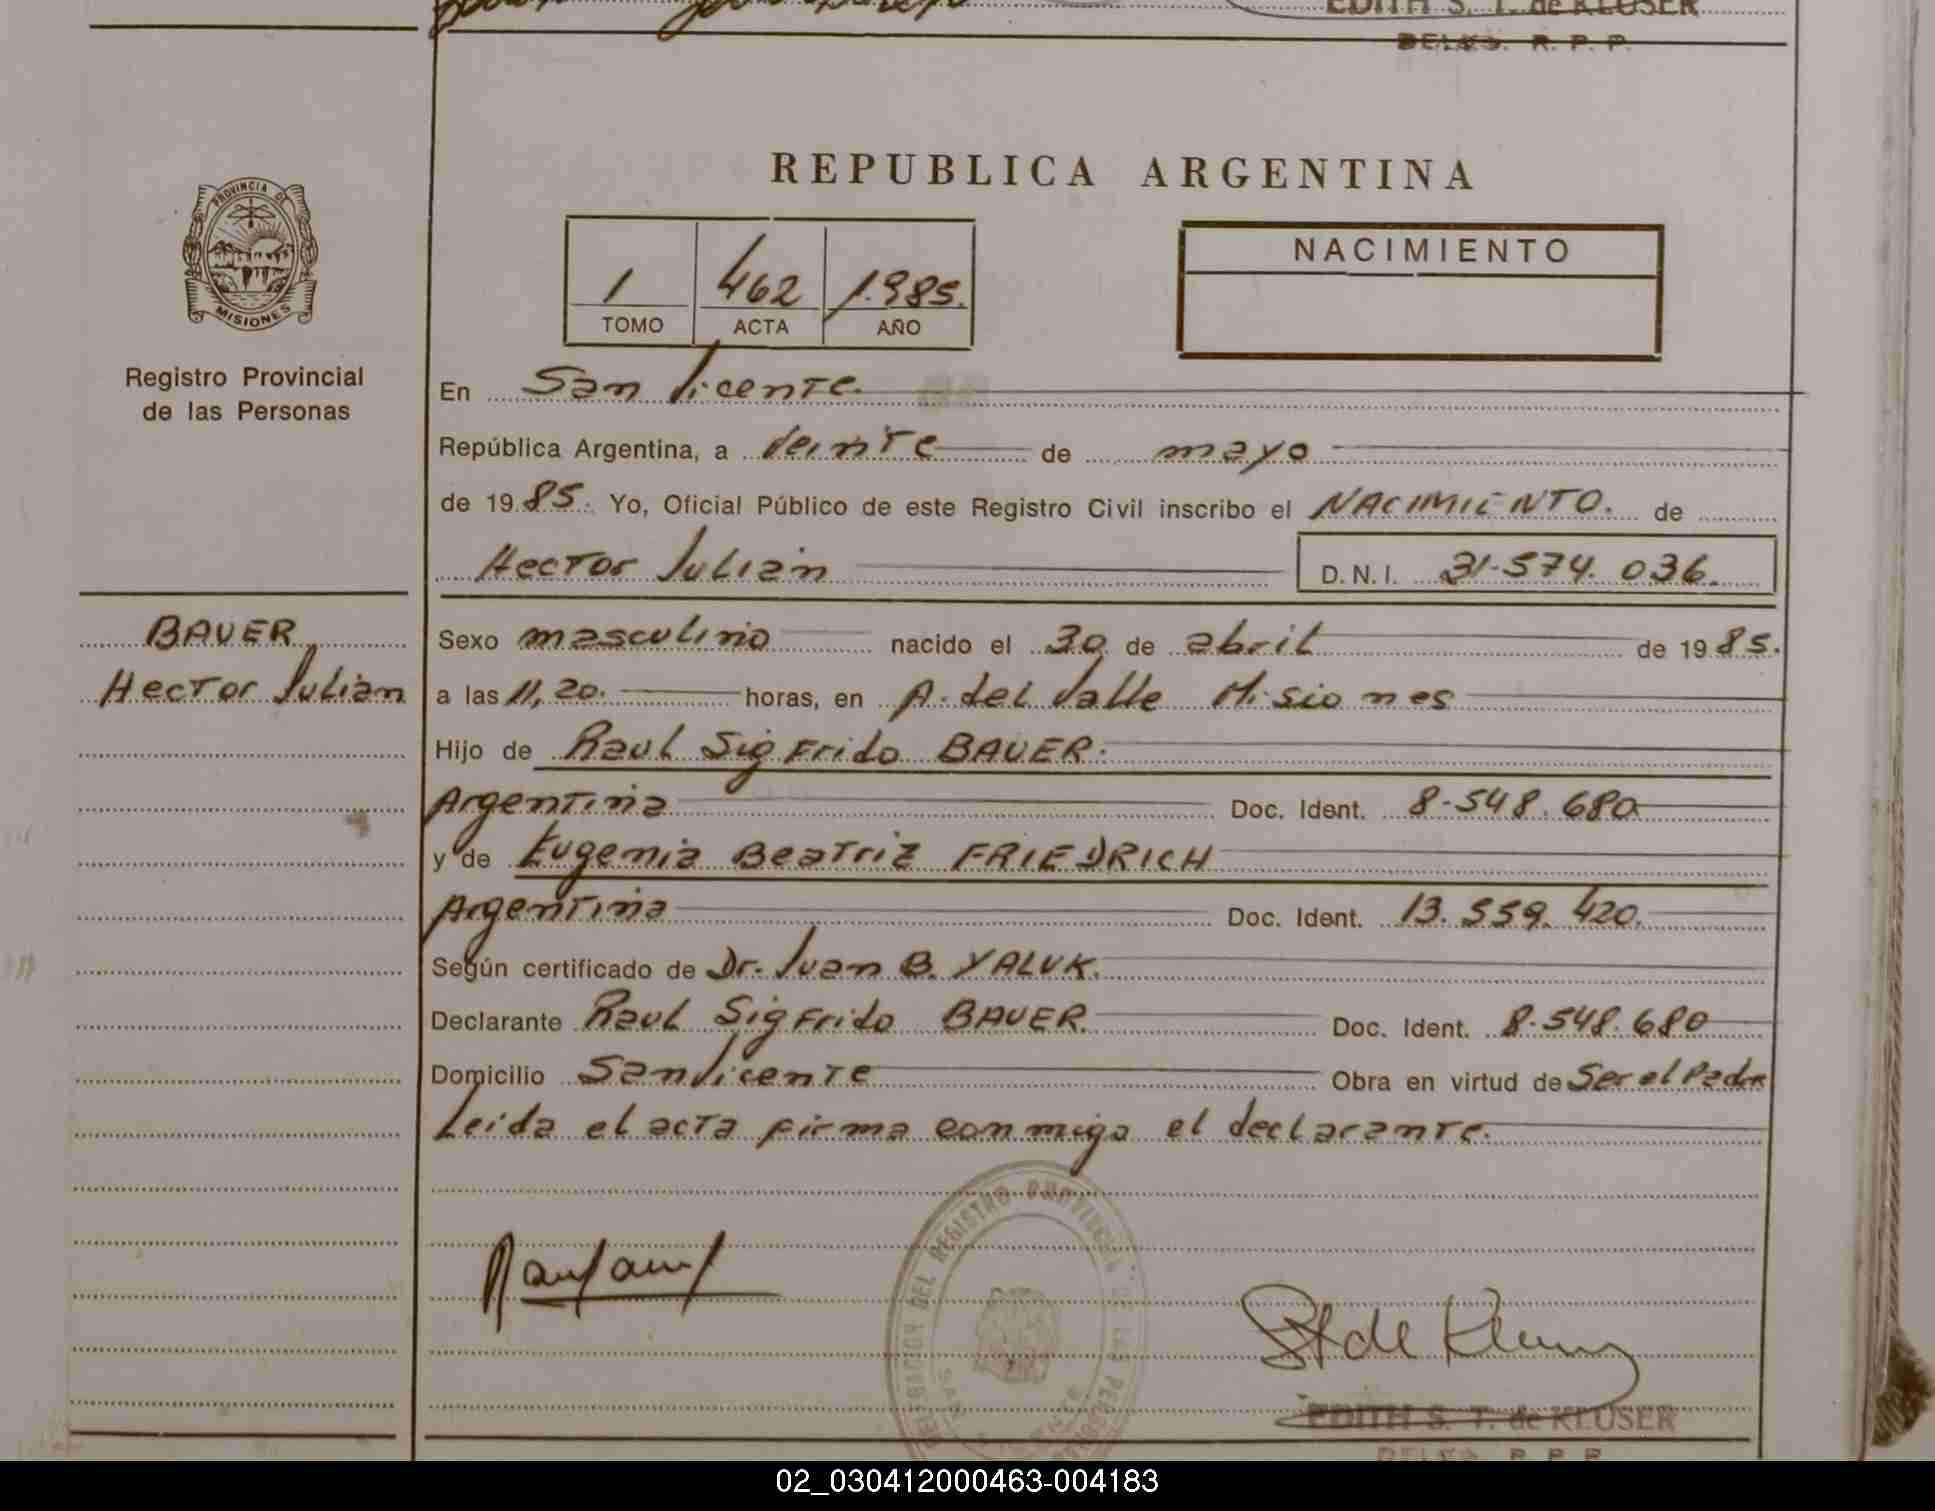 EDITH S. T. de KLUSER
DELEG. R. P. P.
REPUBLICA ARGENTINA
PROVINCIA DE
MISIONES
Registro Provincial
de las Personas
1 462 1.985.
TOMO ACTA AÑO
NACIMIENTO
En San Vicente.
República Argentina, a Veinte de mayo
de 1985. Yo, Oficial Público de este Registro Civil inscribo el NACIMIENTO. de
Hector Julian D.N.I. 31.574.036.
BAUER
Hector Julian
Sexo masculino nacido el 30 de abril de 1985.
a las 11,20. horas, en A. del Valle Misiones
Hijo de Raul Sigfrido BAUER.
Argentina Doc. Ident. 8.548.680
y de Eugenia Beatriz FRIEDRICH
Argentina Doc. Ident. 13.559.420.
Según certificado de Dr. Juan B. YALUK.
Declarante Raul Sigfrido BAUER. Doc. Ident. 8.548.680
Domicilio San Vicente Obra en virtud de Ser el Padre
Leida el acta firma conmigo el declarante.
DEL REGISTRO PROVINCIAL DE LAS PERSONAS
SAN VICENTE
St de Kluser
EDITH S. T. de KLUSER
DELEG. R. P. P.
02_030412000463-004183